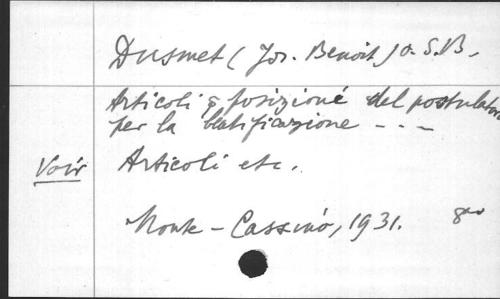 Dusmet (Jos. Benoit) O.S.B.
Articoli e posizione del postulatore
per la beatificazione - - -
Voir Articoli etc.
Monte-Cassino, 1931. 8vo